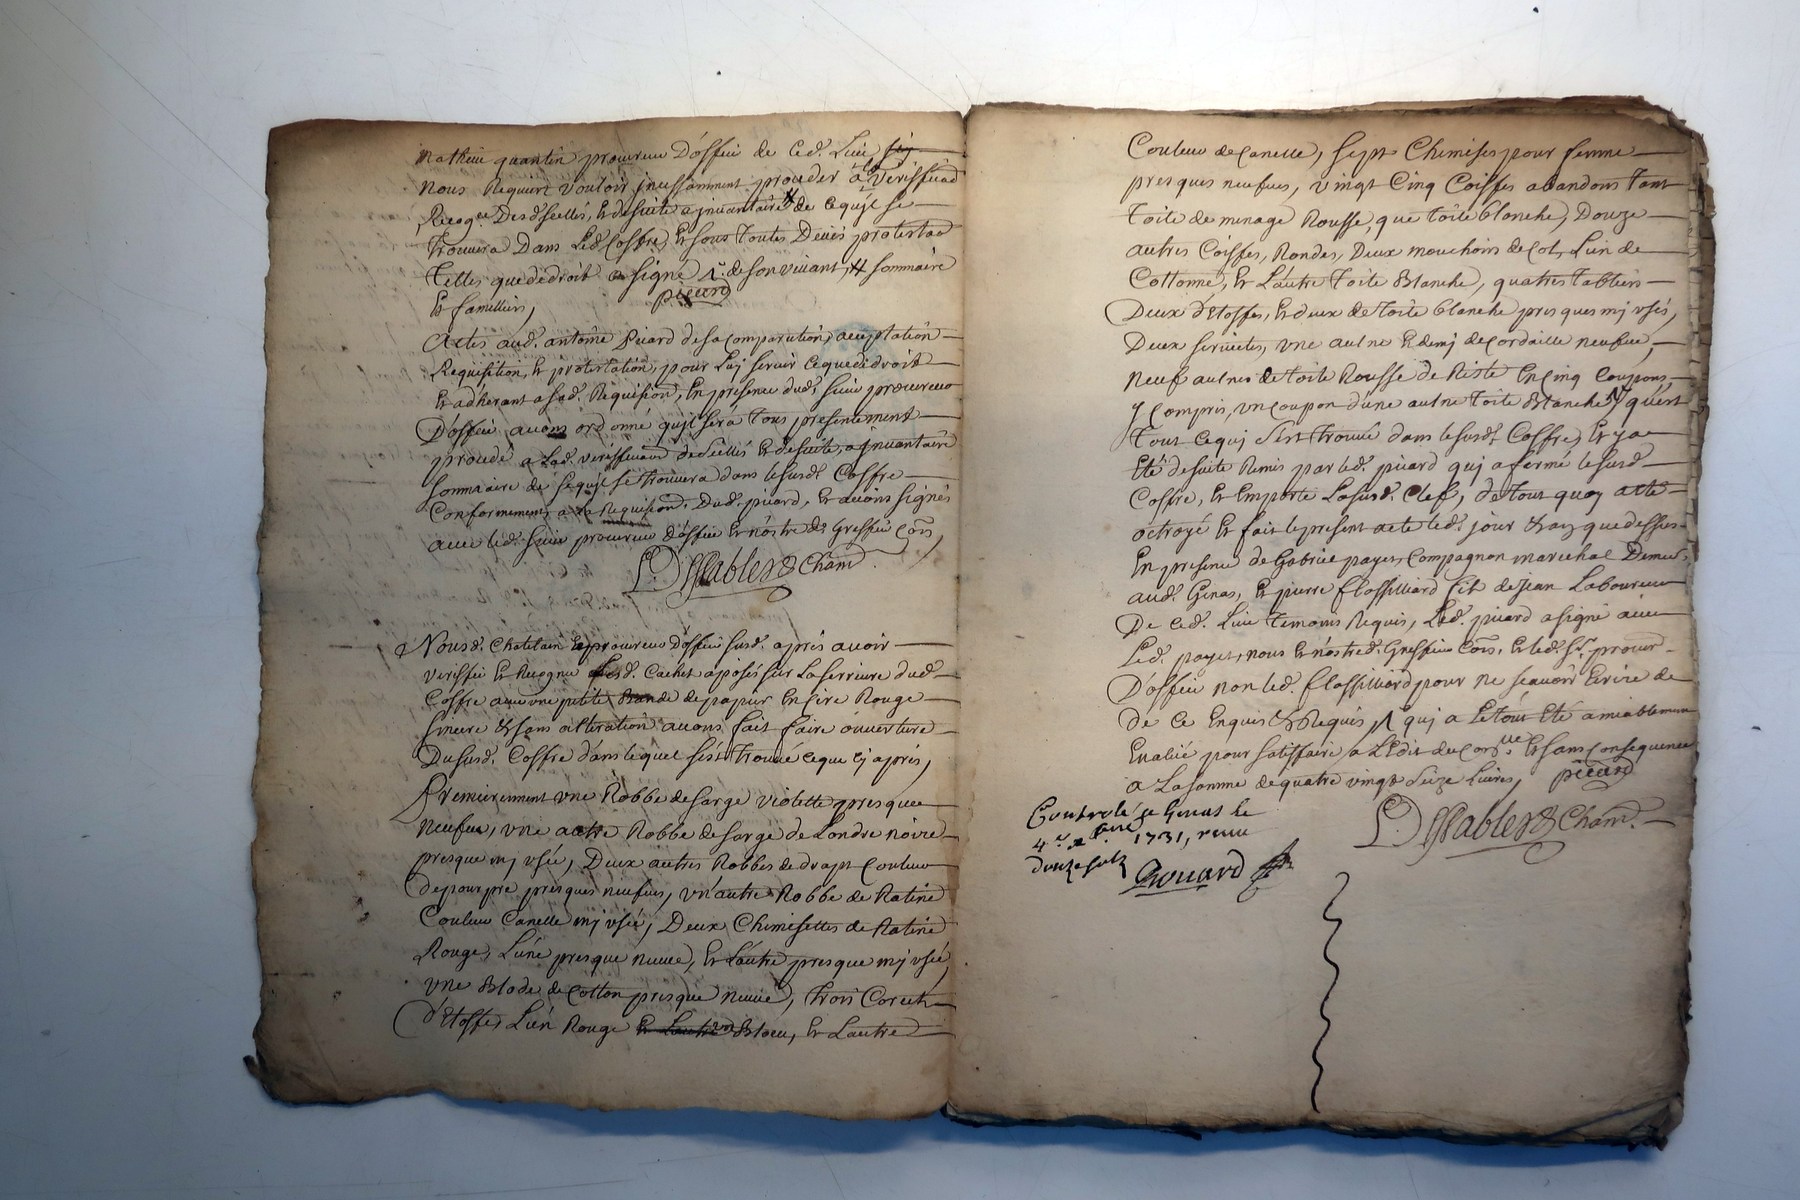 mathieu quantin procureur D'office de Ced. Lieu
nous Requiert vouloir jncessamment proceder à la veriffica͠on
Recog.ce Desd. scellés, et de suite a jnvantaire # de ce qu'jl se
trouvera Dans Led. Coffre, et sous toutes Deües protesta͠on
telles que de droit a signé de son vivant, # sommaire
et familliere,
picard
Actes aud. antoine picard de sa comparution, acceptation
Requisition, et protestation, pour Luj servir ce que de droit
et adhérant a sad. Requision, En presence dud. sieur procureur
D'office avons ordonné qu'jl sera tous presentement
procedé a Lad. veriffica͠on de scellés et de suite, a jnvantaire
sommaire de se qu'jl se trouvera dans le susd. Coffre
Conformement a La Requision, Dud. picard, et avons signés
avec led. sieur procureur d'office et nostre d. Greffier Com͠is,
Cham
Nousd. Chatelain et procureur D'office susd. aprés avoir
veriffié et Recognu Lesd. Cachet aposés sur La serrure dud.
Coffre avec une petite Bande de papier En Cire Rouge
sincere et sans alteration avons fait faire ouverture
Dususd. Coffre dans lequel s'est trouvé ce que cj aprés,
Premierement une Robbe de sarge violette presque
neufue, une autre Robbe de sarge de Londre noire
presque mj usée, Deux autres Robbes de drapt Couleur
de pourpre presques neufues, un'autre Robbe de Ratine
Couleur Canelle mj usée, Deux Chemisettes de Ratine
Rouge, L'une presque neuve, et L'autre presque mj usée
une Blode de Cotton presque neuve, trois Corcets
d'Etoffes L'un Rouge Bleu, et L'autre
Couleur de Canelle, sept Chemises pour femme
presques neufues, vingt Cinq Coiffes
toile de menage Rousse, que toile blanche, Douze
autres Coiffes, Rondes, Deux mouchoirs de Col, L'un de
Cottonne, et L'autre toile Blanche, quatres tabliers
Deux d'Etoffes, et deux de toile blanche presques mj usés,
Deux serviettes, une aulne et demj de Cordaille neufue,
neuf aulnes de toile Rousse de Riste En Cinq Coupons,
y Compris, un Coupon d'une aulne toile Blanche, qu'est
tout ce quj s'est trouvé dans le susd. Coffre, et y a
Eté de suite Remis par led. picard quj a fermé le susd.
Coffre, et Emporté La susd. Clef, de tout quoy a eté
octroyé et fait le present acte led. jour et an que dessus
En presence de Gabriel payet, Compagnon marechal Demeur.
aud. Genas, et pierre flassilliard fils de jean Laboureur
De Ced. Lieu temoins Requis, Led. picard a signé avec
Led. payet, nous et nostred. Greffier Com͠is, et led. Sr. procur.
D'office non led. flassilliard pour ne sçavoir Ecrire de
de ce Enquis et Requis, quj a Le tout Eté amiablement
Evalué pour satisfaire, a L'Edit du Con.lle et sans Consequence
a La somme de quatre vingt seize Livres, picard
Cham
Controlé a Genas le
1731, receu
douze sols
Drouard